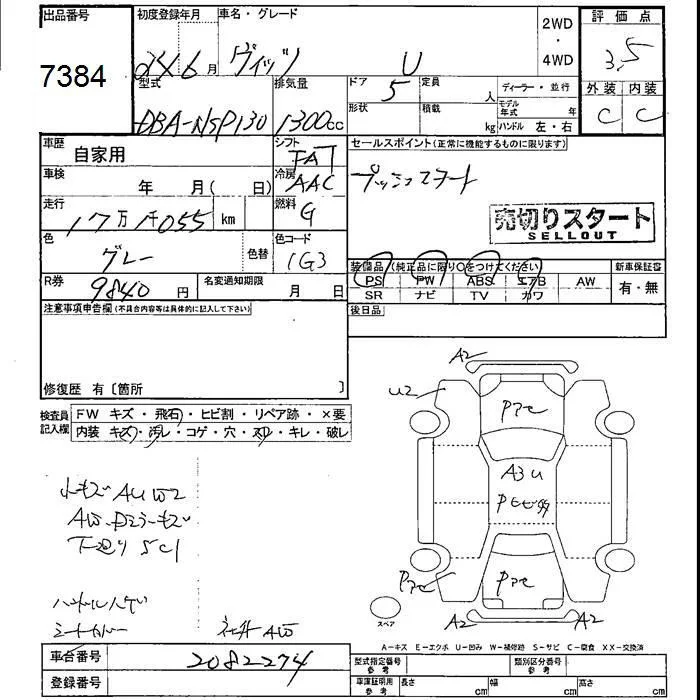 出品番号
7384
初度登録年月
24 6月
車名・グレード
ヴィッツ U
2WD
・
4WD
評価点
3.5
外装 内装
C C
型式
DBA-NSP130
排気量
1300cc
ドア
5
定員
人
形状
積載
kg
ディーラー・並行
モデル年式 年
ハンドル 左・右
車歴
自家用
シフト
FAT
車検
年 月( 日)
冷房
AAC
走行
17万1千055 km
燃料
G
色
グレー
色替
色コード
1G3
R券
9840 円
名変通知期限
月 日
セールスポイント(正常に機能するものに限ります)
プッシュスタート
売切りスタート
SELLOUT
装備品(純正品に限り○をつけてください)
PS PW ABS エアB AW
SR ナビ TV カワ
新車保証書
有・無
後日品
注意事項申告欄(不具合内容等は具体的に記入して下さい)
修復歴 有〔箇所 〕
検査員記入欄
FW キズ・飛石・ヒビ割・リペア跡・×要
内装 キズ・汚レ・コゲ・穴・スレ・キレ・破レ
小キズ AU W2
下廻り SC1
シートカバー
A2
U2
Pアセ
A3 U
Pアセ
Pアセ
A2
A2
スペア
A-キズ E-エクボ U-凹み W-補修跡 S-サビ C-腐食 XX-交換済
車台番号
2082274
登録番号
型式指定番号
参考
類別区分番号
参考
車庫証明用
参考
長さ cm
幅 cm
高さ cm